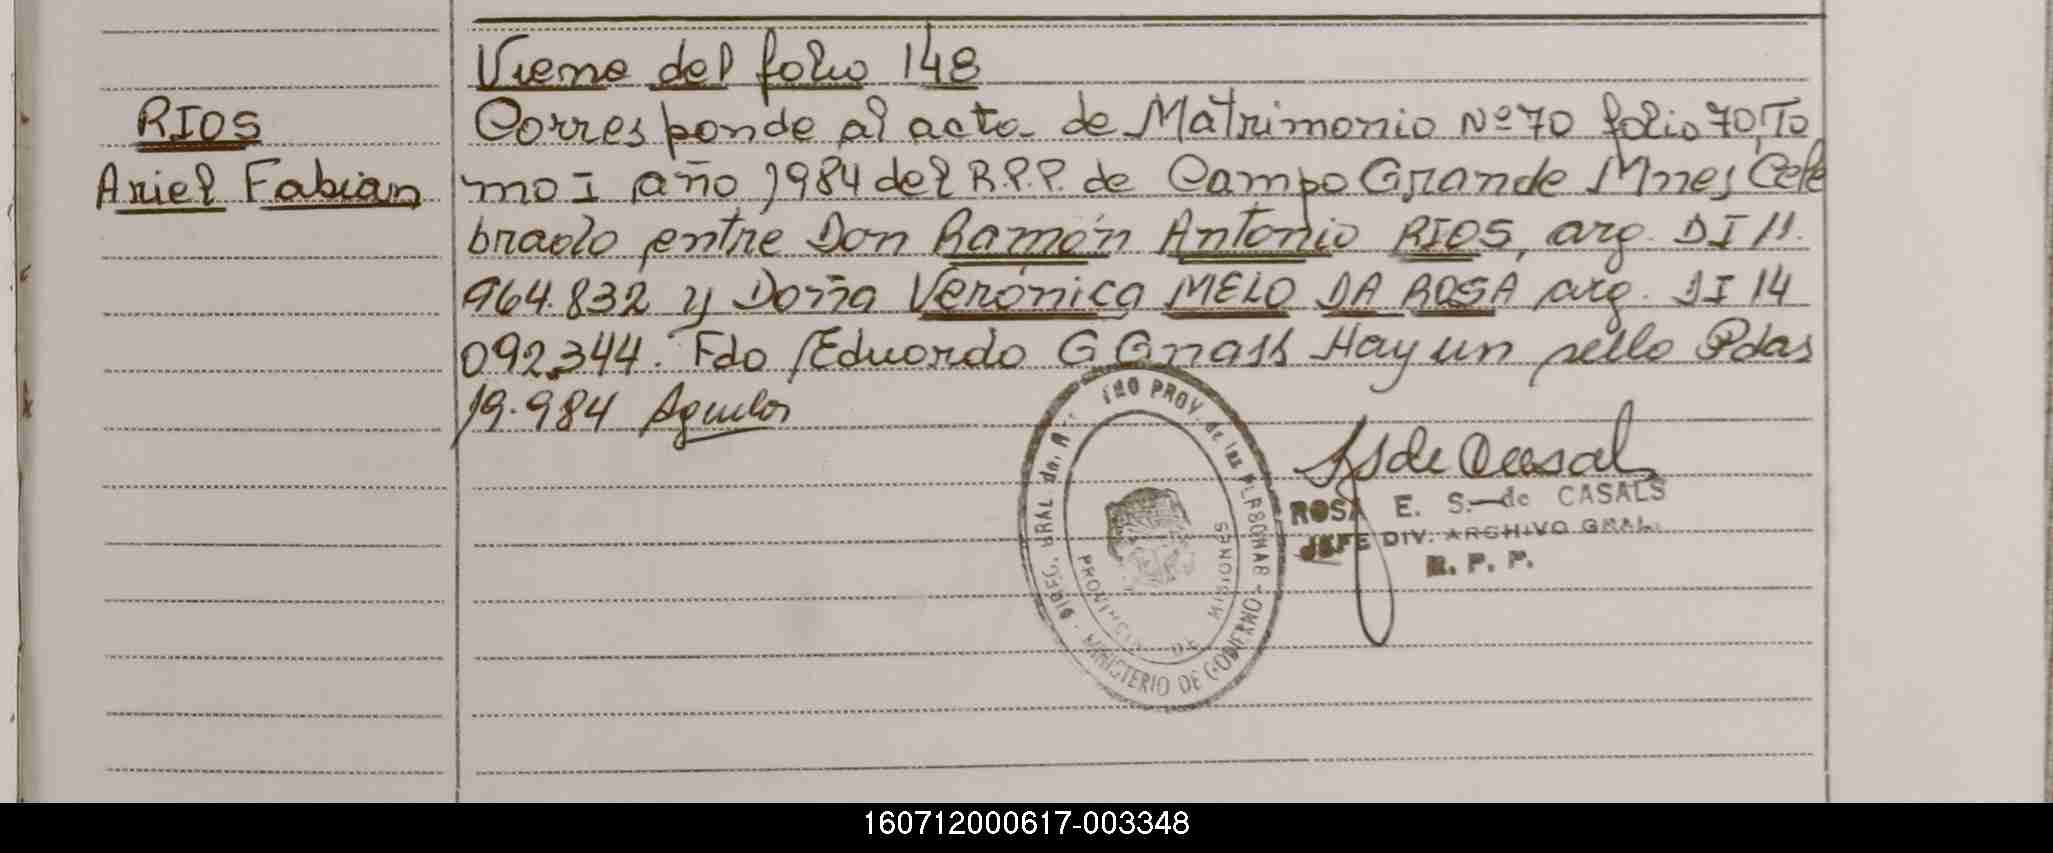 Viene del folio 148
RIOS
Ariel Fabian
Corresponde al acta de Matrimonio Nº 70 folio 70, To
mo I año 1984 del R.P.P. de Campo Grande Mnes Cele
brado entre Don Ramón Antonio RIOS, arg. DI 11.
964.832 y Doña Verónica MELO DA ROSA arg. DI 14
092.344. Fdo Eduardo G Hay un sello Pdas
19.984 Aguilar
DIREC. GRAL de. R PROV. de las PERSONAS - MINISTERIO DE GOBIERNO
PROVINCIA DE MISIONES
S de Casals
ROSA E. S. de CASALS
JEFE DIV. ARCHIVO GRAL.
R. P. P.
160712000617-003348